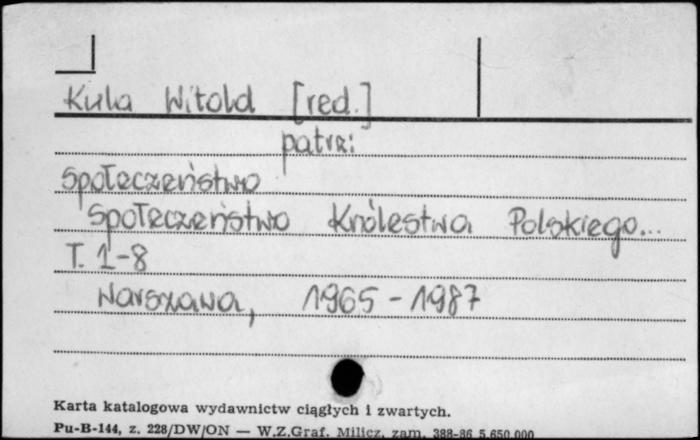 Kula Witold [red.]
patrz:
Społeczeństwo
Społeczeństwo Królestwa Polskiego...
T. 1-8
Warszawa, 1965-1987
Karta katalogowa wydawnictw ciągłych i zwartych.
Pu-B-144, z. 228/DW/ON — W.Z.Graf. Milicz, zam. 388-86 5.650.000